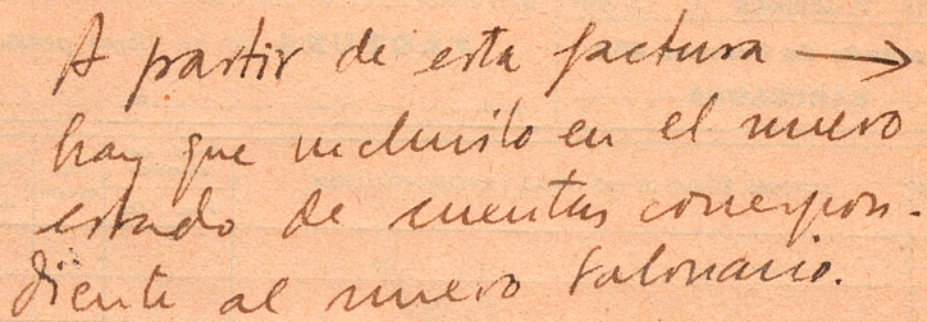 A partir de esta factura →
hay que incluirlo en el nuevo
estado de cuentas correspon-
diente al nuevo talonario.